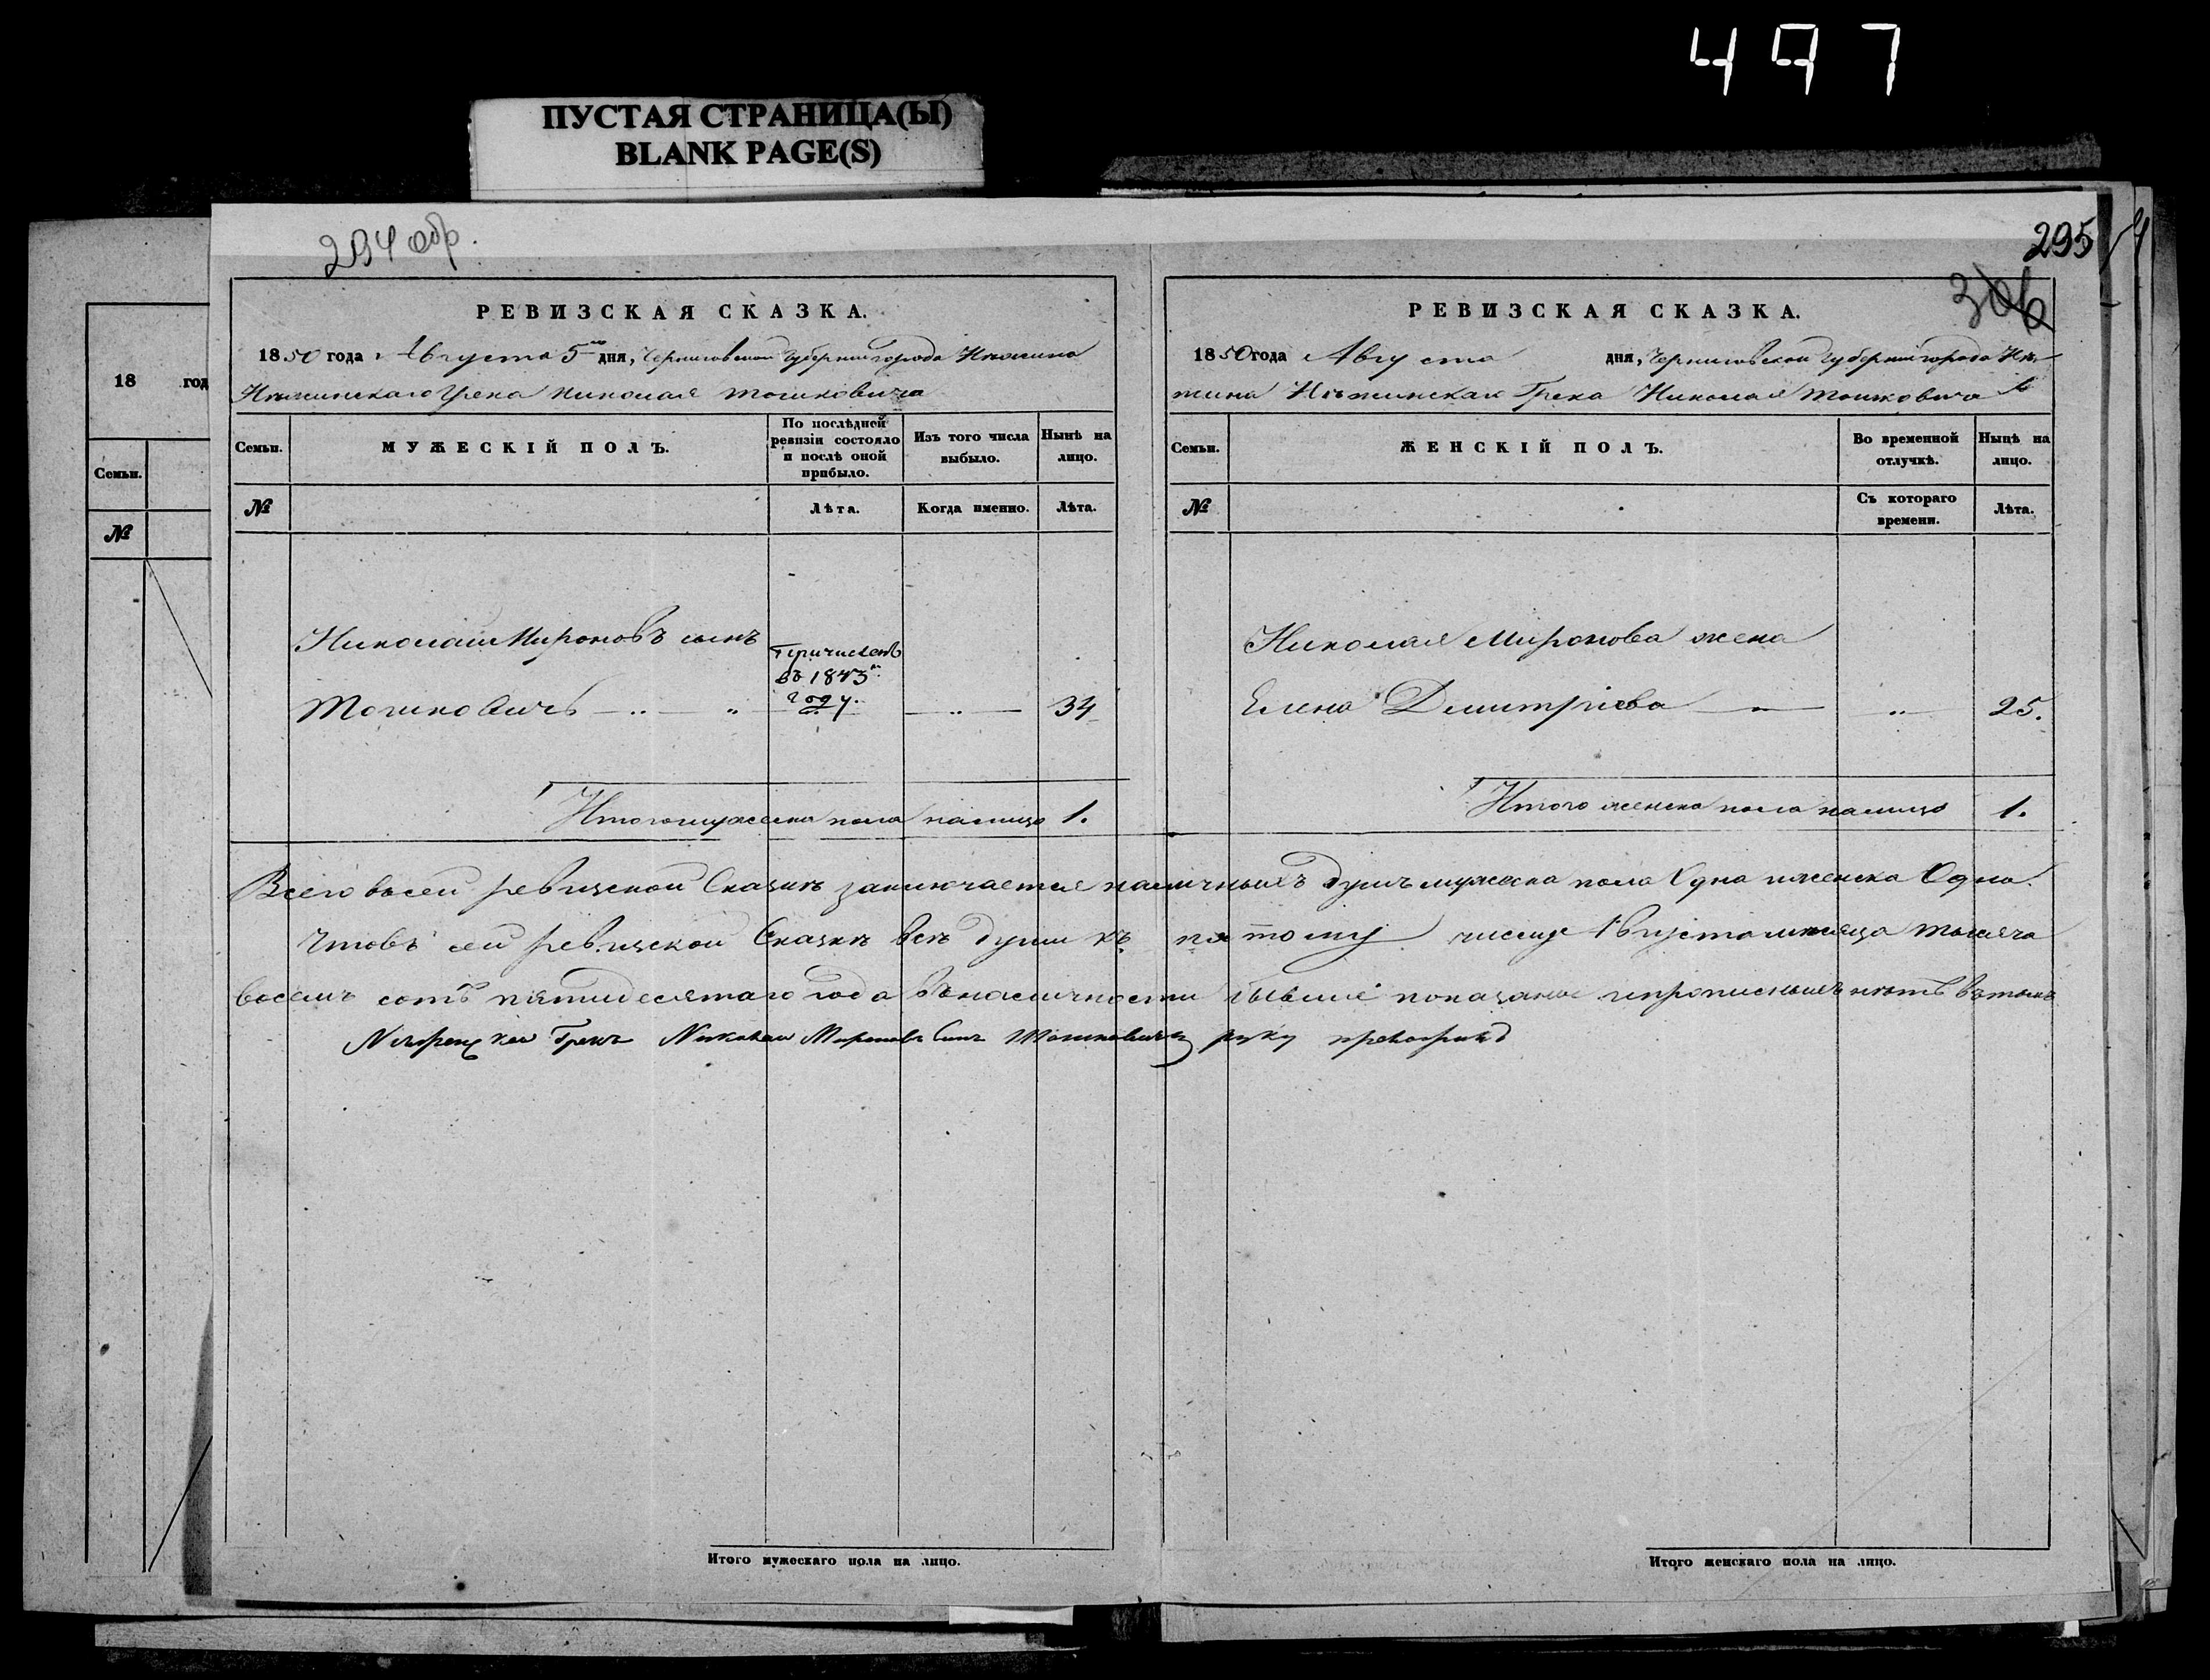 497
ПУСТАЯ СТРАНИЦА(Ы)
BLANK PAGE(S)
294 обр.
295
306
18 год
Семьи.
№
РЕВИЗСКАЯ СКАЗКА.
1850 года Августа 5го дня, Черниговской Губернии города Нѣжина
Нѣжинскаго Грека Николая Тошковича
Семьи.
МУЖЕСКІЙ ПОЛЪ.
По послѣдней ревизіи состояло и послѣ оной прибыло.
Изъ того числа выбыло.
Нынѣ на лицо.
№
Лѣта.
Когда именно.
Лѣта.
Николай Мироновъ сынъ
Причисленъ
въ 1843м
году.
Тошковичъ 34
Итого мужеска пола налицо 1.
РЕВИЗСКАЯ СКАЗКА.
1850 года Августа дня, Черниговской Губернии города Нѣ-
жина Нѣжинскаго Грека Николая Тошковича
Семьи.
ЖЕНСКІЙ ПОЛЪ.
Во временной отлучкѣ.
Нынѣ на лицо.
№
Съ котораго времени.
Лѣта.
Николая Миронова жена
Елена Дмитріева 25.
Итого женска пола налицо 1.
Всего въ сей ревизской Сказкѣ заключается наличныхъ душъ мужеска пола Одна и женска Одна.
Что въ сей ревизской Сказкѣ всѣ души къ пятому числу Августа мѣсяца тысяча
восемь сотъ пятидесятаго года въ наличности бывшіе показаны и прописныхъ нѣтъ въ томъ
Грекъ Николай Мироновъ Сынъ Тошковичъ руку приложилъ
Итого мужескаго пола на лицо.
Итого женскаго пола на лицо.